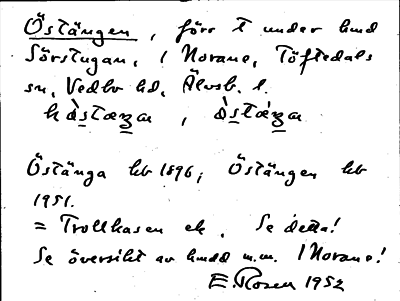 Östängen, förr t under hmd
Sörstugan, i Norane, Töftedals
sn, Vedbo hd, Älvsb. l.
hàstæŋa, òstæ̀ŋa
Östänga kb 1896; Östängen kb
1951.
= Trollhasen ek. Se detta!
Se översikt av hmdd m.m. i Norane!
E. Rosen 1952